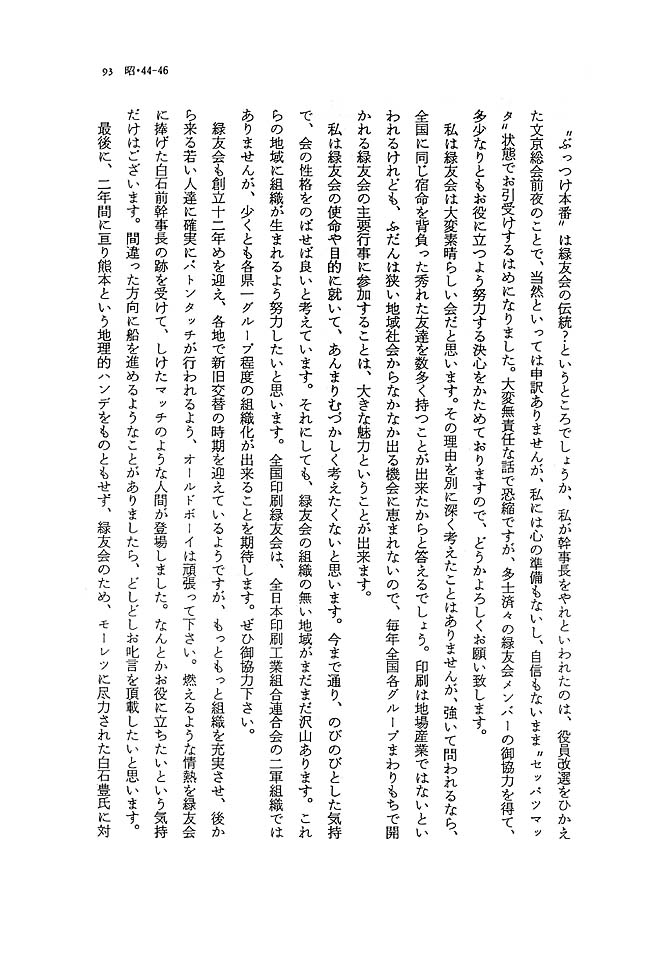 93 昭・44-46
〝ぶっつけ本番〟は緑友会の伝統？というところでしょうか、私が幹事長をやれといわれたのは、役員改選をひかえ
た文京総会前夜のことで、当然といっては申訳ありませんが、私には心の準備もないし、自信もないまま〝セッパツマッ
タ〟状態でお引受けするはめになりました。大変無責任な話で恐縮ですが、多士済々の緑友会メンバーの御協力を得て、
多少なりともお役に立つよう努力する決心をかためておりますので、どうかよろしくお願い致します。
私は緑友会は大変素晴らしい会だと思います。その理由を別に深く考えたことはありませんが、強いて問われるなら、
全国に同じ宿命を背負った秀れた友達を数多く持つことが出来たからと答えるでしょう。印刷は地場産業ではないとい
われるけれども、ふだんは狭い地域社会からなかなか出る機会に恵まれないので、毎年全国各グループまわりもちで開
かれる緑友会の主要行事に参加することは、大きな魅力ということが出来ます。
私は緑友会の使命や目的に就いて、あんまりむづかしく考えたくないと思います。今まで通り、のびのびとした気持
で、会の性格をのばせば良いと考えています。それにしても、緑友会の組織の無い地域がまだまだ沢山あります。これ
らの地域に組織が生まれるよう努力したいと思います。全国印刷緑友会は、全日本印刷工業組合連合会の二軍組織では
ありませんが、少くとも各県一グループ程度の組織化が出来ることを期待します。ぜひ御協力下さい。
緑友会も創立十二年めを迎え、各地で新旧交替の時期を迎えているようですが、もっともっと組織を充実させ、後か
ら来る若い人達に確実にバトンタッチが行われるよう、オールドボーイは頑張って下さい。燃えるような情熱を緑友会
に捧げた白石前幹事長の跡を受けて、しけたマッチのような人間が登場しました。なんとかお役に立ちたいという気持
だけはございます。間違った方向に船を進めるようなことがありましたら、どしどしお叱言を頂載したいと思います。
最後に、二年間に亘り熊本という地理的ハンデをものともせず、緑友会のため、モーレツに尽力された白石豊氏に対